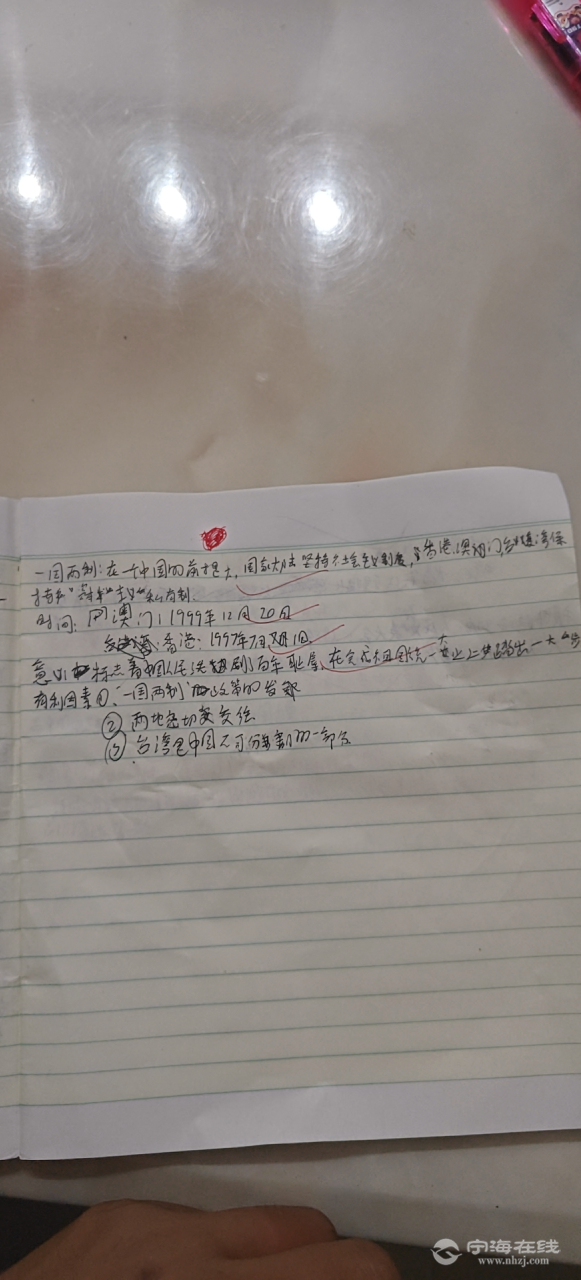 一国两制:在一个中国的前提下,国家主体坚持社会主义制度,香港、澳门、台湾保
持 主义 私有制.
时间: 澳门:1999年12月20日
香港:1997年7月1日.
意义:标志着中国人民洗刷了百年耻辱,在完成祖国统一大业上 踏出一大步
有利因素①.“一国两制”政策的
② 两地密切交
③ 台湾是中国不可分割的一部分
宁海在线
www.nhzj.com